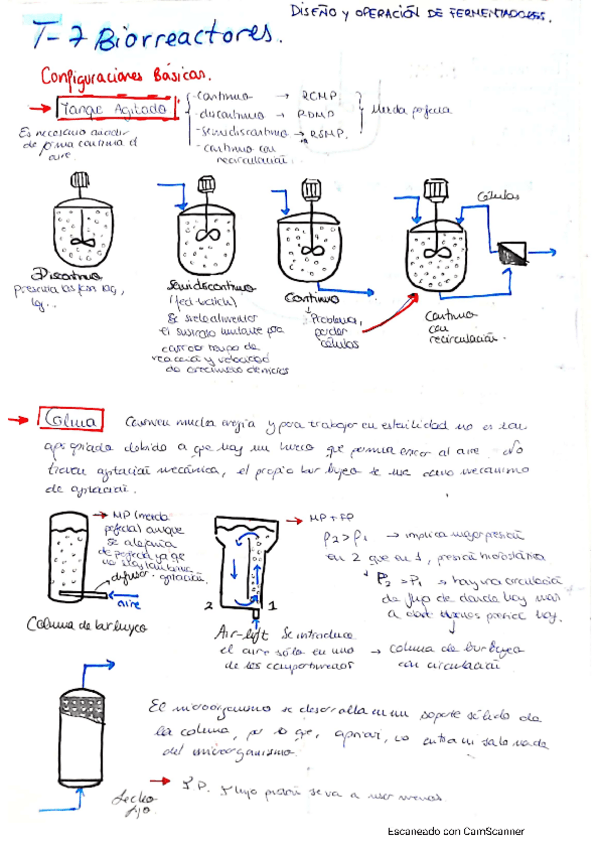 DISEÑO y OPERACIÓN DE FERMENTADORES.
T-7 Biorreactores.
Configuraciones Básicas.
Tanque Agitado
- continuo → RCMP
- discontinuo → RDMP
- semidiscontinuo → RSMP.
- continuo con recirculación.
Mezcla perfecta
Es necesario añadir
de forma continua el
aire.
Células
Discontinuo
Semidiscontinuo
(fed-batch)
Se
el sustrato
y velocidad
de crecimiento
Continuo
Problema,
perder
células
Continuo
con
recirculación.
Columna
Consumen mucha energía y para trabajar en esterilidad no es tan
apropiada debido a que hay un hueco que permite entrar al aire. No
tienen agitación mecánica, el propio burbujeo se usa como mecanismo
de agitación.
→ MP (mezcla
perfecta) aunque
se alejaría
de perfecta ya que
no hay tantísima
agitación.
difusor
aire
Columna de burbujeo
2 1
Air-lift Se introduce
el aire sólo en uno
de los compartimentos
→ MP + FP
ρ2 > ρ1 → implica mayor presión
en 2 que en 1, presión hidrostática
P2 > P1 → hay una circulación
de flujo de donde hay más
a donde menos presión hay.
→ columna de burbujeo
con circulación
El microorganismo se desarrolla en un soporte sólido de
la columna, por lo que, apenas, no entra ni sale nada
del microorganismo.
→ F.P. Flujo pistón se va a usar menos
Lecho
fijo.
Escaneado con CamScanner